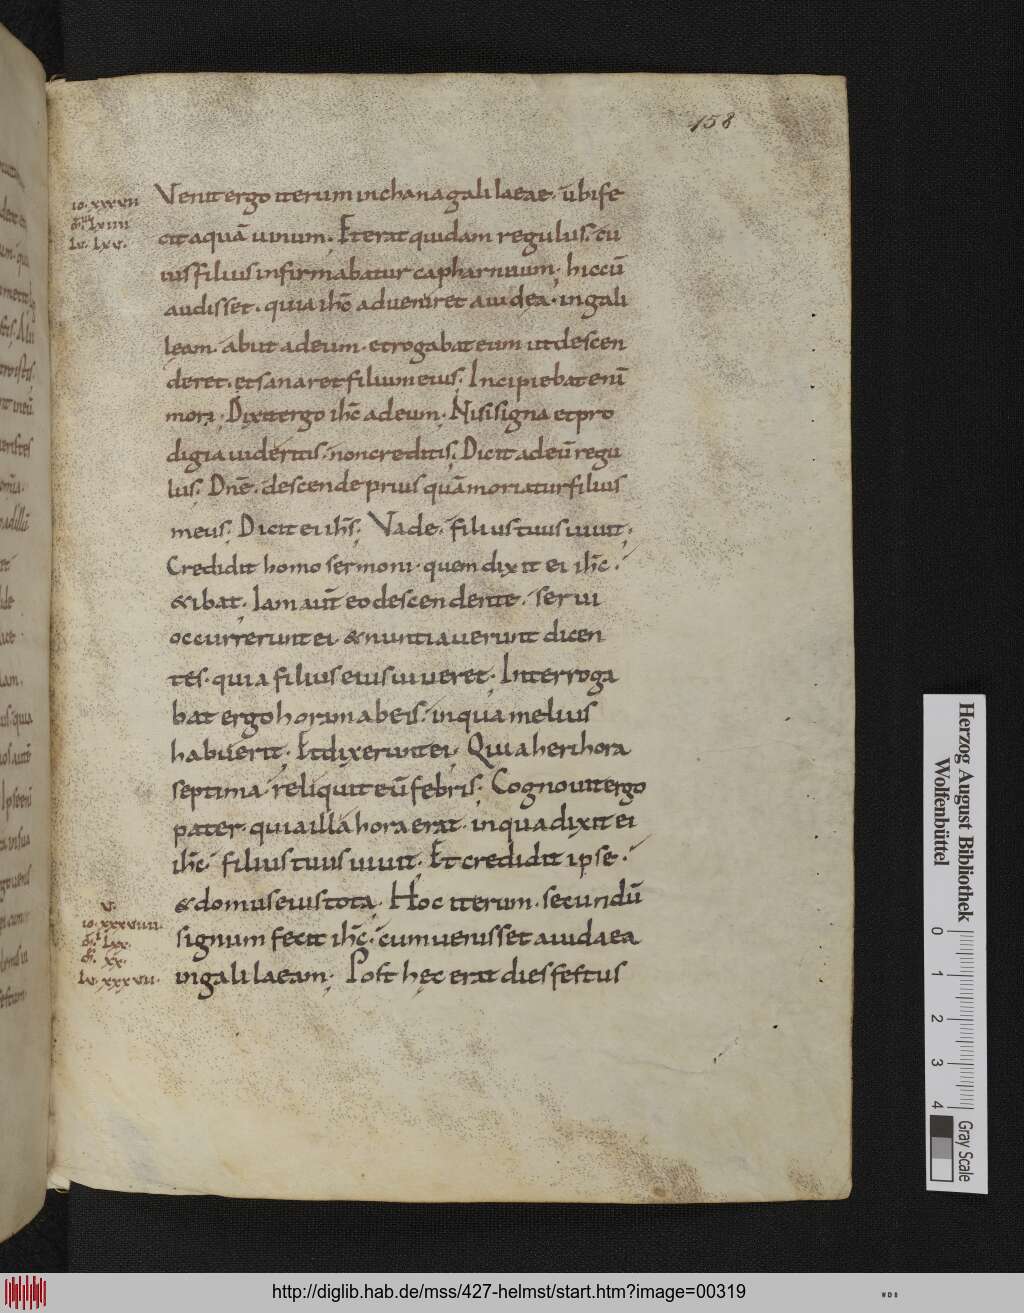 158
Venit ergo iterum in chana galilaeae. ubi fe
io. xxxvii
cit aquā uinum. Et erat quidam regulus. cu
mt. lxiiii
lu. lxv.
ius filius infirmabatur capharnuum. hic cū
audisset. quia ihc̄ adueniret a iudea. in gali
leam. abiit ad eum. et rogabat eum ut descen
deret. et sanaret filium eius. Incipiebat enī
mori. Dixit ergo ihc̄ ad eum. Nisi signa et pro
digia uideritis. non creditis. Dicit ad eū regu
lus. Dnē. descende prius quā moriatur filius
meus. Dicit ei ihs̄. Vade. filius tuus uiuit.
Credidit homo sermoni. quem dixit ei ihc̄.
& ibat. Iam aut̄ eo descendente. serui
occurrerunt ei & nuntiauerunt dicen
tes. quia filius eius uiueret. Interroga
bat ergo horam ab eis. in qua melius
habuerit. Et dixerunt ei. Quia heri hora
septima reliquit eū febris. Cognouit ergo
pater. quia illa hora erat. in qua dixit ei
ihc̄ filius tuus uiuit. Et credidit ipse.
& domus eius tota. Hoc iterum. secundū
v.
io. xxxviiii.
signum fecit ihc̄. cum uenisset a iudaea
mt. lxx.
mr. xx.
lu. xxxvii.
in galilaeam. Post hęc erat dies festus
Herzog August Bibliothek
Wolfenbüttel
0 1 2 3 4
Gray Scale
http://diglib.hab.de/mss/427-helmst/start.htm?image=00319